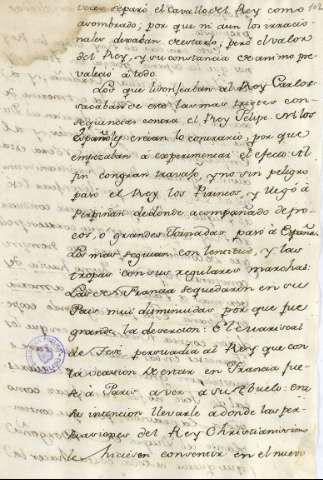 veces reparó el Cavallo del Rey como
asombrado; por que ni aun los irracio-
nales dexaban de notarlo, pero el valor
del Rey, y su constancia de animo pre-
valecio á todo.
Los que lisonjeaban al Rey Carlos
sacaban de esto las mas tristes con-
sequencias contra el Rey Felipe. Ni los
Españoles creian lo contrario, por que
empezaban a experimentar el efecto: Al
fin con gran travajo, y no sin peligro
pasó el Rey los Pirineos, y llegó á
Perpiñan de donde acompañado de po-
cos, ó grandes Jornadas pasó á España
Los mas seguian con lentitud, y las
tropas con sus regulares marchas.
Las de Francia se quedaron en su
Pais mui disminuidas por que fue
grande la desercion: El Mariscal
de Tesé persuadia al Rey que con
la ocasion de entrar en Francia fue-
se á Paris a ver á su Abuelo: era
su intencion llevarle adonde las per-
suasiones del Rey Christianisimo
le hiciesen convenir en el nuevo